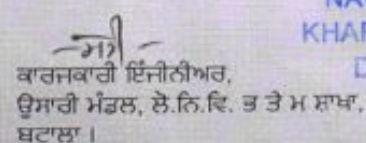 NA
KHAR
D
ਸਹੀ/-
ਕਾਰਜਕਾਰੀ ਇੰਜੀਨੀਅਰ,
ਉਸਾਰੀ ਮੰਡਲ, ਲੋ.ਨਿ.ਵਿ. ਭ ਤੇ ਮ ਸ਼ਾਖਾ,
ਬਟਾਲਾ ।